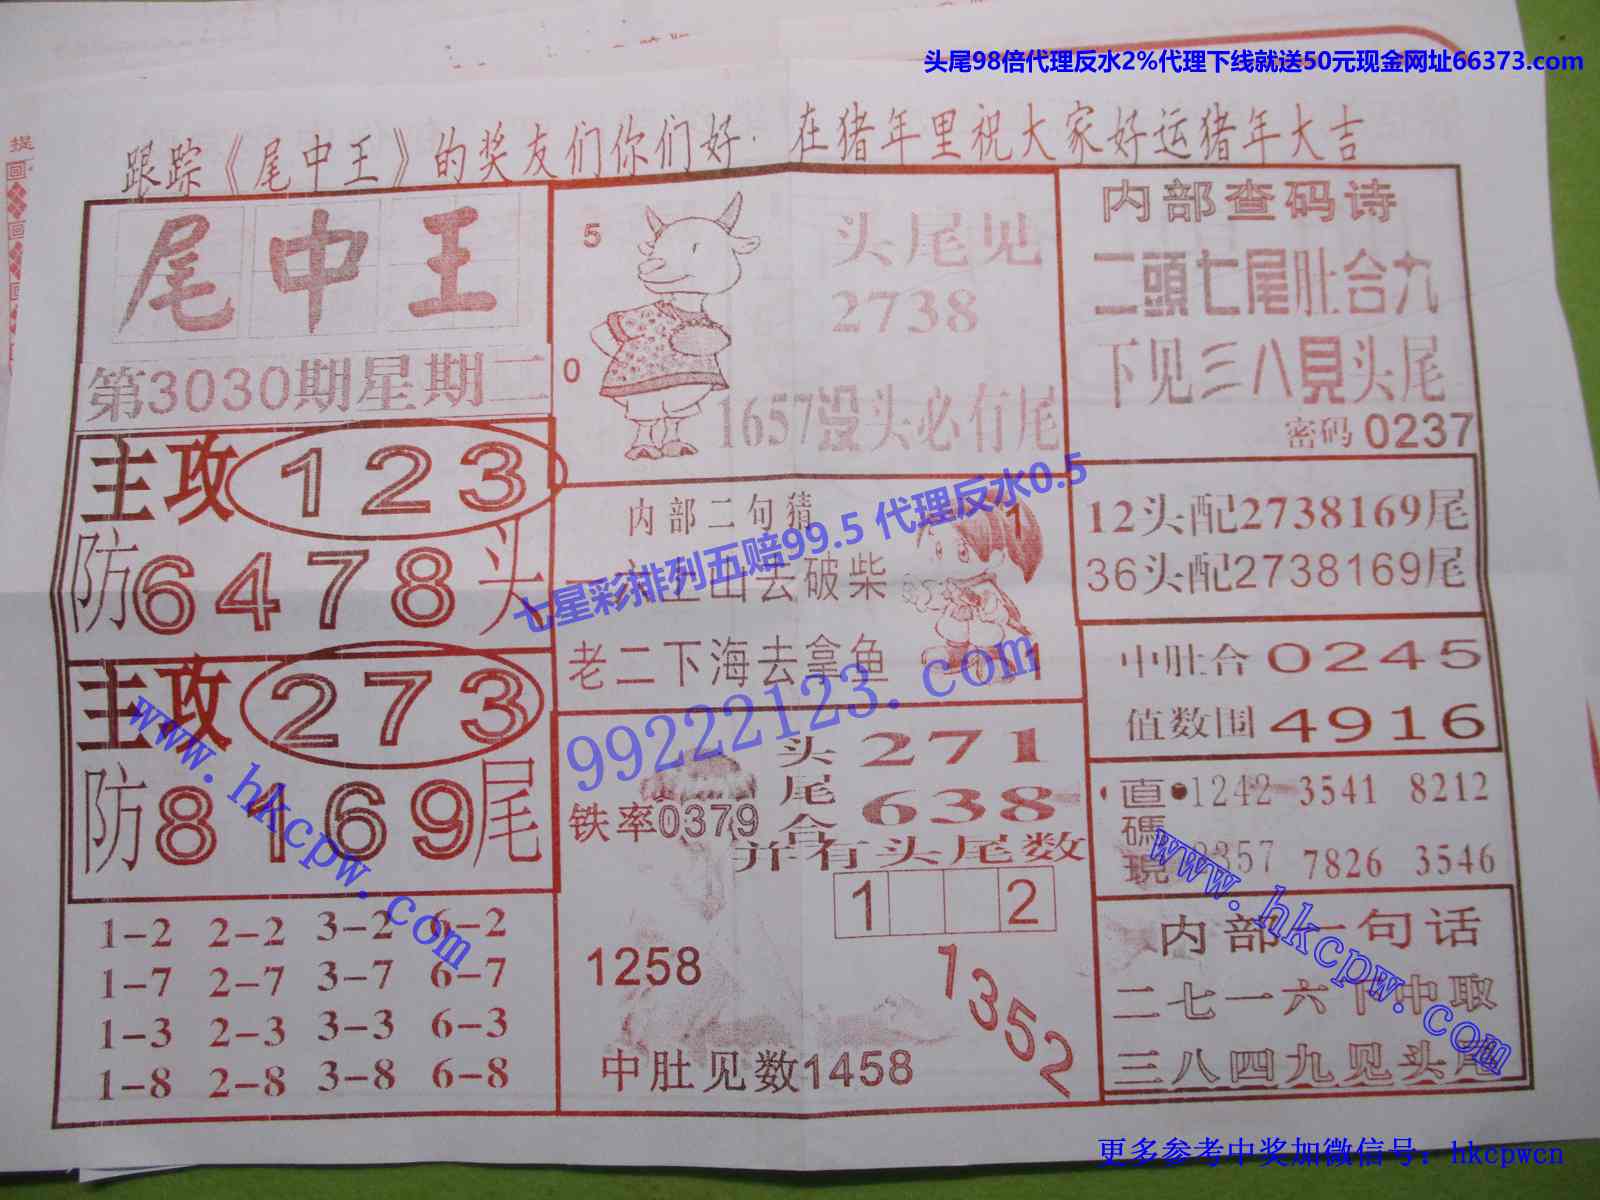 头尾98倍代理反水2%代理下线就送50元现金网址66373.com
提
回
回
回
跟踪《尾中王》的奖友们你们好·在猪年里祝大家好运猪年大吉
尾中王
第3030期星期二
主攻123
防6478头
主攻273
防8169尾
1-2 2-2 3-2 6-2
1-7 2-7 3-7 6-7
1-3 2-3 3-3 6-3
1-8 2-8 3-8 6-8
5
0
头尾见
2738
1657没头必有尾
内部二句猜
上山去破柴
老二下海去拿鱼
1
1
铁率0379
头尾合
271
638
并有头尾数
1 2
1258
1352
中肚见数1458
内部查码诗
二頭七尾肚合九
下见三八見头尾
密码0237
12头配2738169尾
36头配2738169尾
中肚合0245
值数围4916
直碼現
1242 3541 8212
357 7826 3546
内部一句话
二七一六下中取
三八四九见头尾
七星彩排列五赔99.5 代理反水0.5
99222123.com
www.hkcpw.com
www.hkcpw.com
更多参考中奖加微信号：hkcpwcn